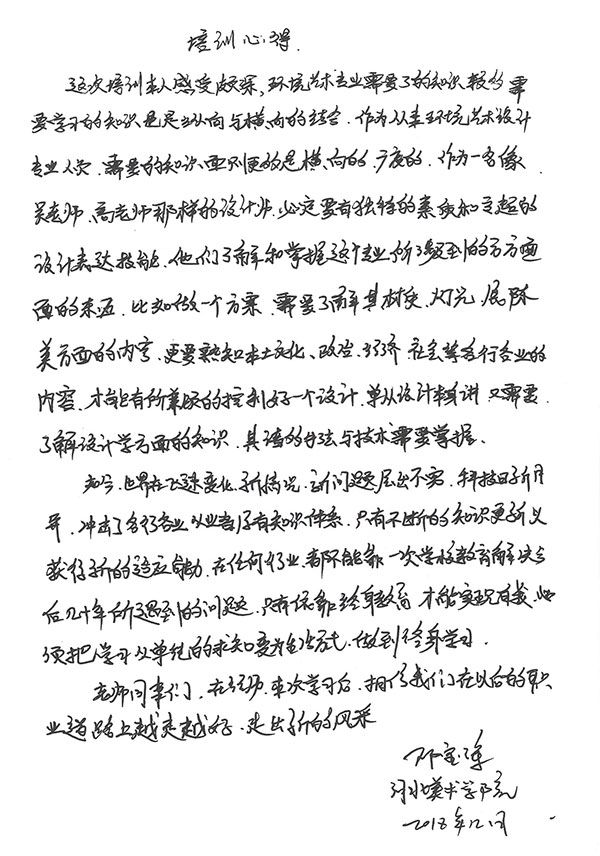 培训心得.
这次培训本人感受颇深,环境艺术专业需要了的知识较多需
要学习的知识也是纵向与横向的结合.作为从事环境艺术设计
专业人员,需要的知识面则更的是横向的广度的.作为一名像
吴老师、高老师那样的设计师,必定要有独特的素质和卓越的
设计表达技能.他们了解和掌握这个专业所涉及到的方方面
面的东西.比如做一个方案,需要了解其材质、灯光、展陈
美方面的内容,更要熟知本土文化、政治、经济、社会等各行各业的
内容,才能有所兼顾的控制好一个设计.单从设计本身讲,又需要
了解设计学方面的知识,具体的方法与技术需要掌握.
如今,世界在飞速变化,新情况、新问题层出不穷,科技日新月
异,冲击了各行各业从业者原有知识体系.只有不断的知识更新以
获得新的适应能力.在任何行业,都不能靠一次学校教育解决今
后几十年所遇到的问题,只有依靠终身教育,才能实现自我.必
须把学习从单纯的求知变为生活方式,做到终身学习.
老师同事们,在经历本次学习后,相信我们在以后的职
业道路上越走越好,走出新的风采
河北美术学院
2018年12月